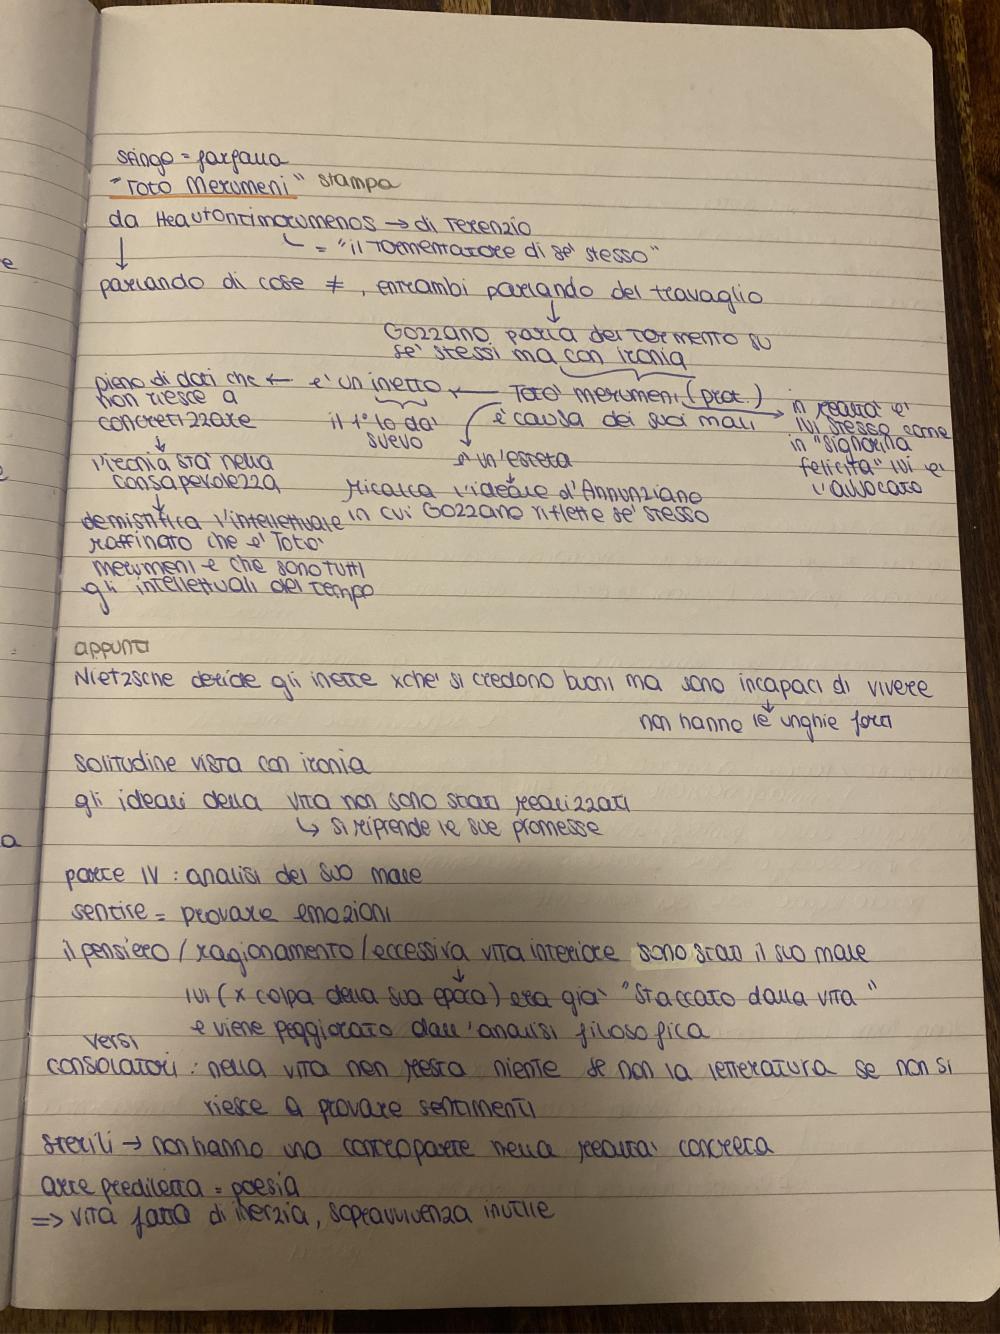 sfingo = farfalla
"Toto Merumeni" stampa
da Heautontimorumenos → di Terenzio
↓ ↳ = "il tormentatore di se' stesso"
parlando di cose ≠, entrambi parlando del travaglio
↓
Gozzano parla del tormento su
se' stessi ma con ironia
pieno di doti che ← e' un inetto ← Toto' merumeni (prot.) → in realta' e'
non riesce a il 1° lo da' e' causa dei suoi mali lui stesso come
concretizzare svevo in "signorina
↓ e' un'esteta felicita" lui e'
l'ironia sta' nella l'avvocato
consapevolezza ricalca l'ideale d'Annunziano
↓ in cui Gozzano riflette se' stesso
demistifica l'intellettuale
raffinato che e' Toto'
merumeni e che sono tutti
gli intellettuali del tempo
appunti
Nietzsche deride gli inette xche' si credono buoni ma sono incapaci di vivere
↓
non hanno le unghie forti
solitudine vista con ironia
gli ideali della vita non sono stati realizzati
↳ si riprende le sue promesse
parte IV : analisi del suo male
sentire = provare emozioni
il pensiero / ragionamento / eccessiva vita interiore sono stati il suo male
↓
lui ( x colpa della sua epoca) era gia' "staccato dalla vita"
e viene peggiorato dall'analisi filosofica
versi
consolatori : nella vita non resta niente se non la letteratura se non si
riesce a provare sentimenti
sterili → non hanno una controparte nella realta' concreta
arte prediletta = poesia
⇒ vita fatta di inerzia, sopravvivenza inutile